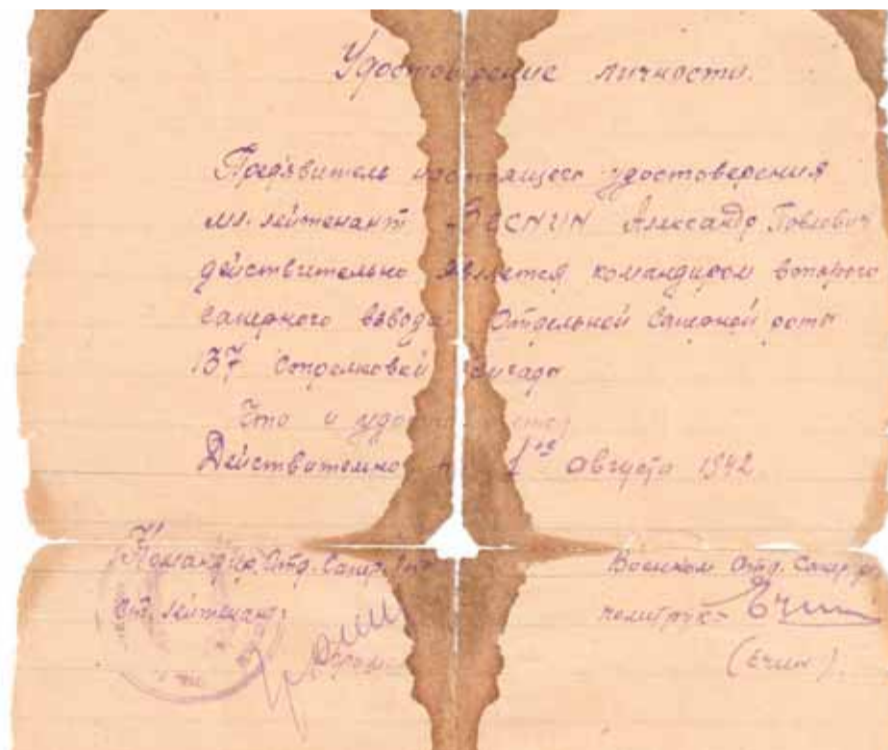 Удостоверение личности.
Предявитель настоящего удостоверения
мл. лейтенант Веснин Александр Павлович
действительно является командиром второго
саперного взвода Отдельной Саперной роты
137 Стрелковой бригады
Что и удостоверяется
Действительно 1ое августа 1942
Командир Отд. Сапер. Военком Отд. Сапер. р.
Ст. лейтенант политрук Ечин
(Ечин).